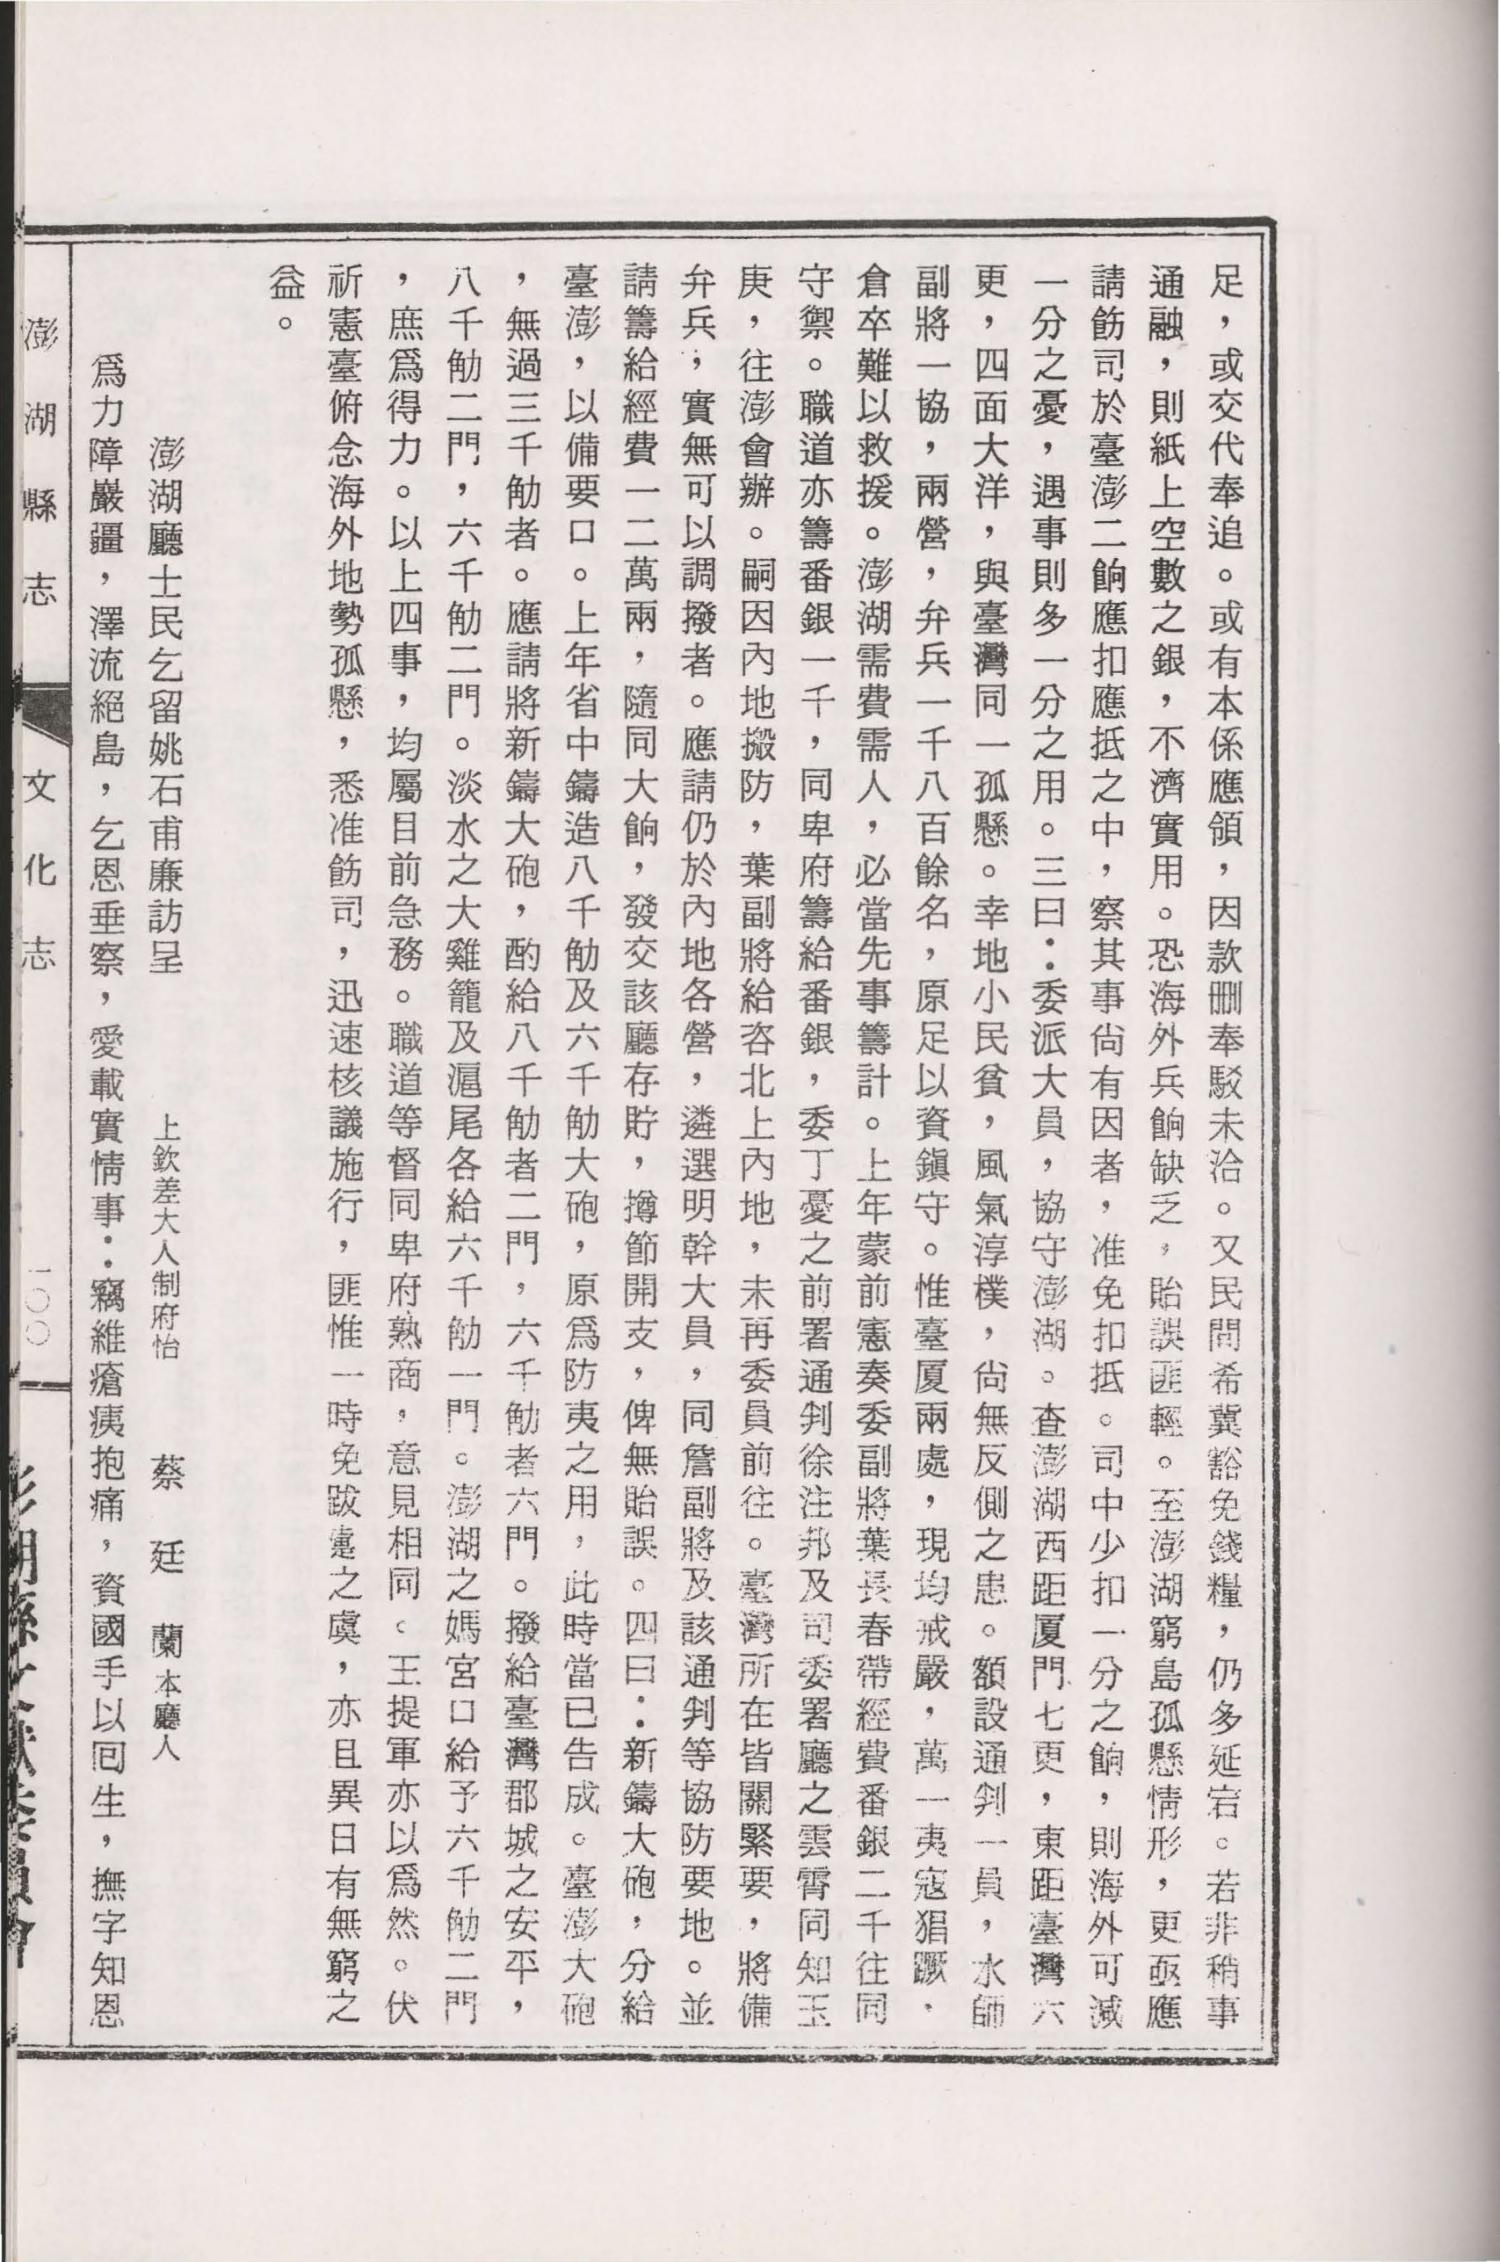 足，或交代奉追。或有本係應領，因款刪奉駁未洽。又民間希冀豁免錢糧，仍多延宕。若非稍事
通融，則紙上空數之銀，不濟實用。恐海外兵餉缺乏，貽誤匪輕。至澎湖窮島孤懸情形，更亟應
請飭司於臺澎二餉應扣應抵之中，察其事尙有因者，准免扣抵。司中少扣一分之餉，則海外可減
一分之憂，遇事則多一分之用。三曰：委派大員，協守澎湖。查澎湖西距厦門七更，東距臺灣六
更，四面大洋，與臺灣同一孤懸。幸地小民貧，風氣淳樸，尙無反側之患。額設通判一員，水師
副將一協，兩營，弁兵一千八百餘名，原足以資鎭守。惟臺厦兩處，現均戒嚴，萬一夷寇猖蹶，
倉卒難以救援。澎湖需費需人，必當先事籌計。上年蒙前憲奏委副將葉長春帶經費番銀二千往同
守禦。職道亦籌番銀一千，同卑府籌給番銀，委丁憂之前署通判徐注邦及司委署廳之雲霄同知玉
庚，往澎會辦。嗣因內地搬防，葉副將給咨北上內地，未再委員前往。臺灣所在皆關緊要，將備
弁兵，實無可以調撥者。應請仍於內地各營，遴選明幹大員，同詹副將及該通判等協防要地。並
請籌給經費一二萬兩，隨同大餉，發交該廳存貯，撙節開支，俾無貽誤。四曰：新鑄大砲，分給
臺澎，以備要口。上年省中鑄造八千觔及六千觔大砲，原爲防夷之用，此時當已告成。臺澎大砲
，無過三千觔者。應請將新鑄大砲，酌給八千觔者二門，六千觔者六門。撥給臺灣郡城之安平，
八千觔二門，六千觔二門。淡水之大雞籠及滬尾各給六千觔一門。澎湖之媽宮口給予六千觔二門
，庶爲得力。以上四事，均屬目前急務。職道等督同卑府熟商，意見相同。王提軍亦以爲然。伏
祈憲臺俯念海外地勢孤懸，悉准飭司，迅速核議施行，匪惟一時免跋疐之虞，亦且異日有無窮之
益。
澎湖廳士民乞留姚石甫廉訪呈　上欽差大人制府怡　蔡廷蘭本廳人
爲力障巖疆，澤流絕島，乞恩垂察，愛載實情事：竊維瘡痍抱痛，資國手以囘生，撫字知恩
澎湖縣志　文化志　一〇〇　澎湖縣文獻委員會